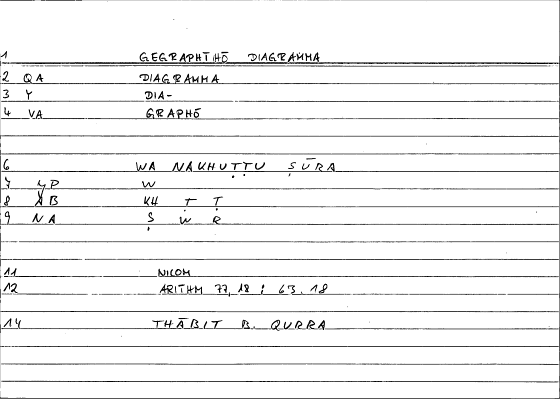 1 GEGRAPHTHŌ DIAGRAMMA
2 QA DIAGRAMMA
3 Y DIA-
4 VA GRAPHŌ
6 WA NAKHUṬṬU ṢŪRA
7 YP W
8 AB KH Ṭ Ṭ
9 NA Ṣ W R
11 NICOM
12 ARITHM 77, 18 : 63.18
14 THĀBIT B. QURRA